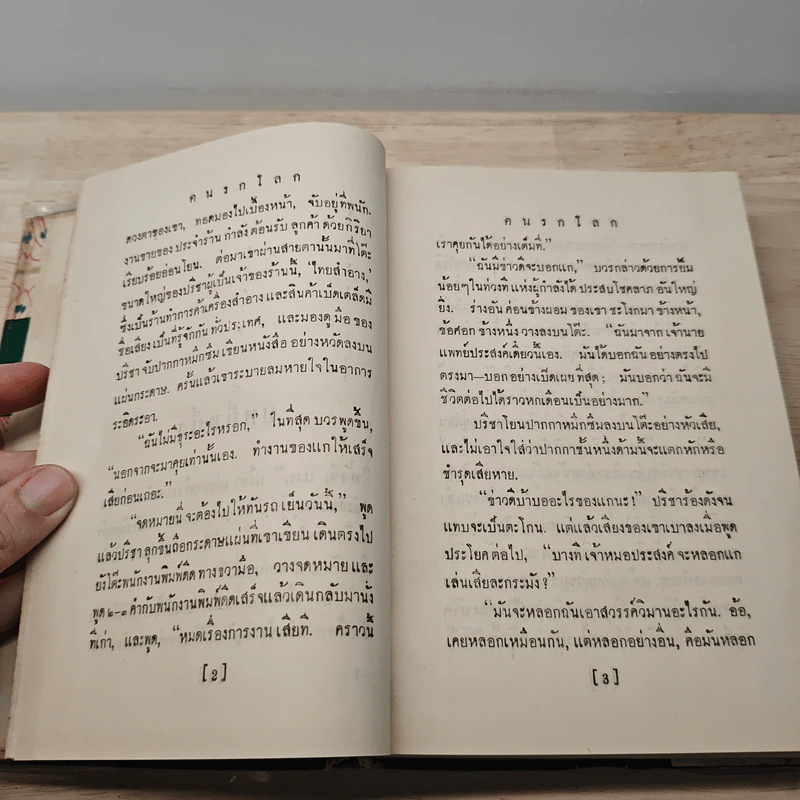 คนรกโลก
ดวงตาของเขา, ทอดมองไปเบื้องหน้า, จับอยู่ที่พนัก.
งานขายของ ประจำร้าน กำลัง ต้อนรับ ลูกค้า ด้วยกิริยา
เรียบร้อยอ่อนโยน. ต่อมาเขาผ่านสายตานั้นมาที่โต๊ะ
ขนาดใหญ่ของปรีชาผู้เป็นเจ้าของร้านนั้น, 'ไทยสำอาง,'
ซึ่งเป็นร้านทำการค้าเครื่องสำอาง และสินค้าเบ็ดเตล็ดมี
ชื่อเสียง เป็นที่รู้จักกัน ทั่วประเทศ, และมองดู มือ ของ
ปรีชา จับปากกาหมึกซึม เขียนหนังสือ อย่างหวัดลงบน
แผ่นกระดาษ. ครั้นแล้วเขาระบายลมหายใจในอาการ
ระอิดระอา.
"ฉันไม่มีธุระอะไรหรอก," ในที่สุด บวรพูดขึ้น,
"นอกจากจะมาคุยเท่านั้นเอง. ทำงานของแกให้เสร็จ
เสียก่อนเถอะ."
"จดหมายนี้ จะต้องไปให้ทันรถ เย็นวันนี้," พูด
แล้วปรีชา ลุกขึ้นถือกระดาษแผ่นที่เขาเขียน เดินตรงไป
ยังโต๊ะพนักงานพิมพ์ดีด ทางขวามือ, วางจดหมาย และ
พูด ๒-๓ คำกับพนักงานพิมพ์ดีดเสร็จแล้วเดินกลับมานั่ง
ที่เก่า, และพูด, "หมดเรื่องการงาน เสียที. คราวนี้
[2]
คนรกโลก
เราคุยกันได้อย่างเต็มที่."
"ฉันมีข่าวดีจะบอกแก," บวรกล่าวด้วยการยิ้ม
น้อยๆในท่วงที แห่งผู้กำลังได้ ประสบโชคลาภ อันใหญ่
ยิ่ง. ร่างอัน ค่อนข้างผอม ของเขา ชะโงกมา ข้างหน้า,
ข้อศอก ข้างหนึ่ง วางลงบนโต๊ะ. "ฉันมาจาก เจ้านาย
แพทย์ประสงค์เดี๋ยวนี้เอง. มันได้บอกฉัน อย่างตรงไป
ตรงมา—บอก อย่างเปิดเผย ที่สุด ; มันบอกว่า ฉันจะมี
ชีวิตต่อไปได้ราวหกเดือนเป็นอย่างมาก."
ปรีชาโยนปากกาหมึกซึมลงบนโต๊ะอย่างหัวเสีย,
และไม่เอาใจใส่ว่าปากกาชั้นหนึ่งด้ามนี้จะแตกหักหรือ
ชำรุดเสียหาย.
"ข่าวดีบ้าบออะไรของแกนะ !" ปรีชาร้องดังจน
แทบจะเป็นตะโกน. แต่แล้วเสียงของเขาเบาลงเมื่อพูด
ประโยค ต่อไป, "บางที เจ้าหมอประสงค์ จะหลอกแก
เล่นเสียละกระมัง ?"
"มันจะหลอกกันเอาสวรรค์วิมานอะไรกัน. อ้อ,
เคยหลอกเหมือนกัน, แต่หลอกอย่างอื่น, คือมันหลอก
[3]